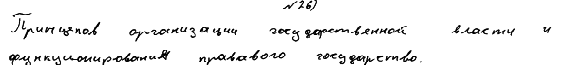 №26)
Принципов организации государственной власти и
функционирования правового государство.